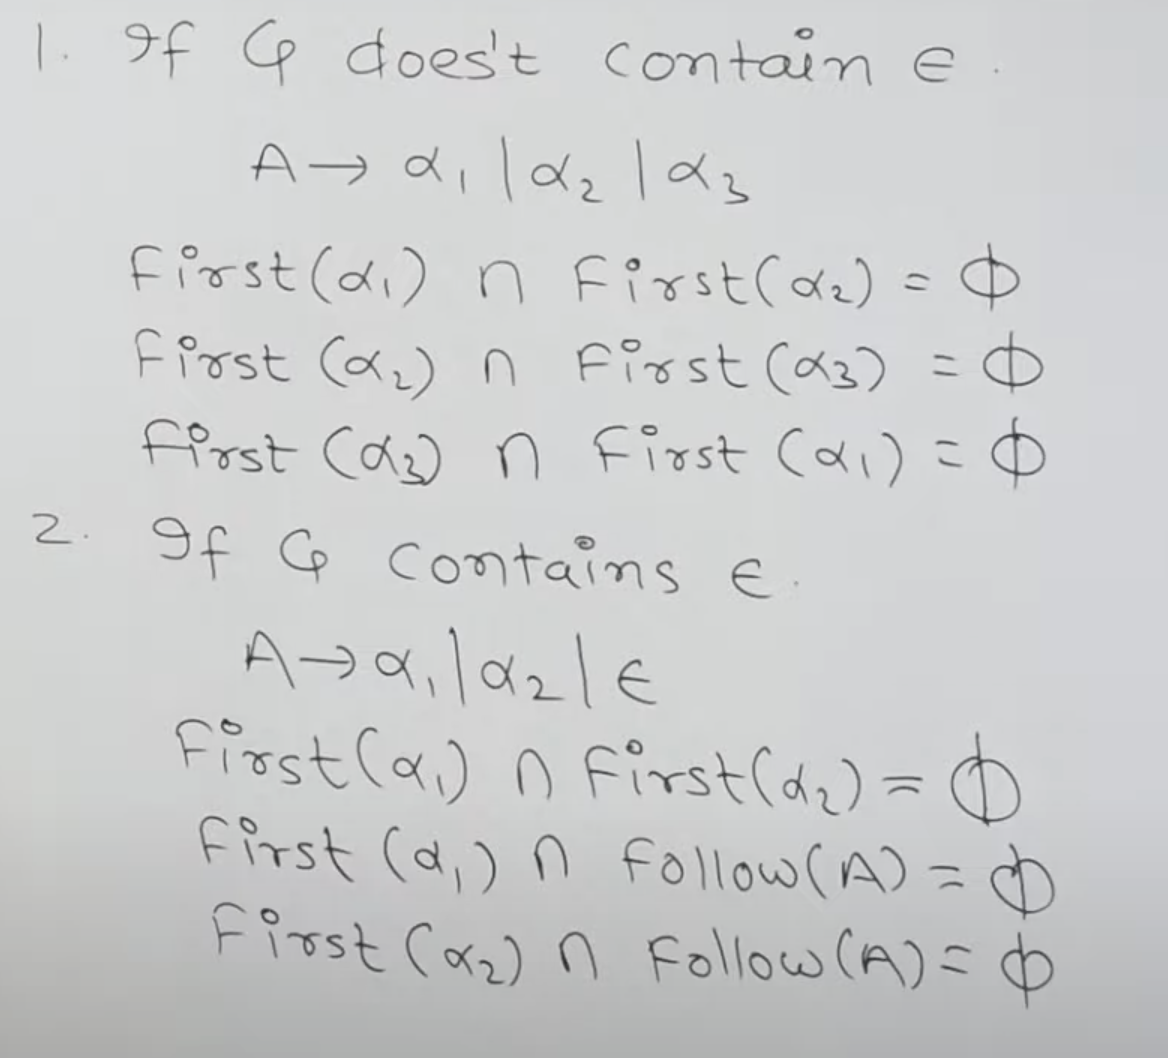 1. If G does't contain ϵ.
A → α₁ | α₂ | α₃
First(α₁) ∩ First(α₂) = ϕ
First (α₂) ∩ First (α₃) = ϕ
First (α₃) ∩ First (α₁) = ϕ
2. If G contains ϵ.
A → α₁ | α₂ | ϵ
First(α₁) ∩ First(α₂) = ϕ
First (α₁) ∩ Follow(A) = ϕ
First (α₂) ∩ Follow(A) = ϕ